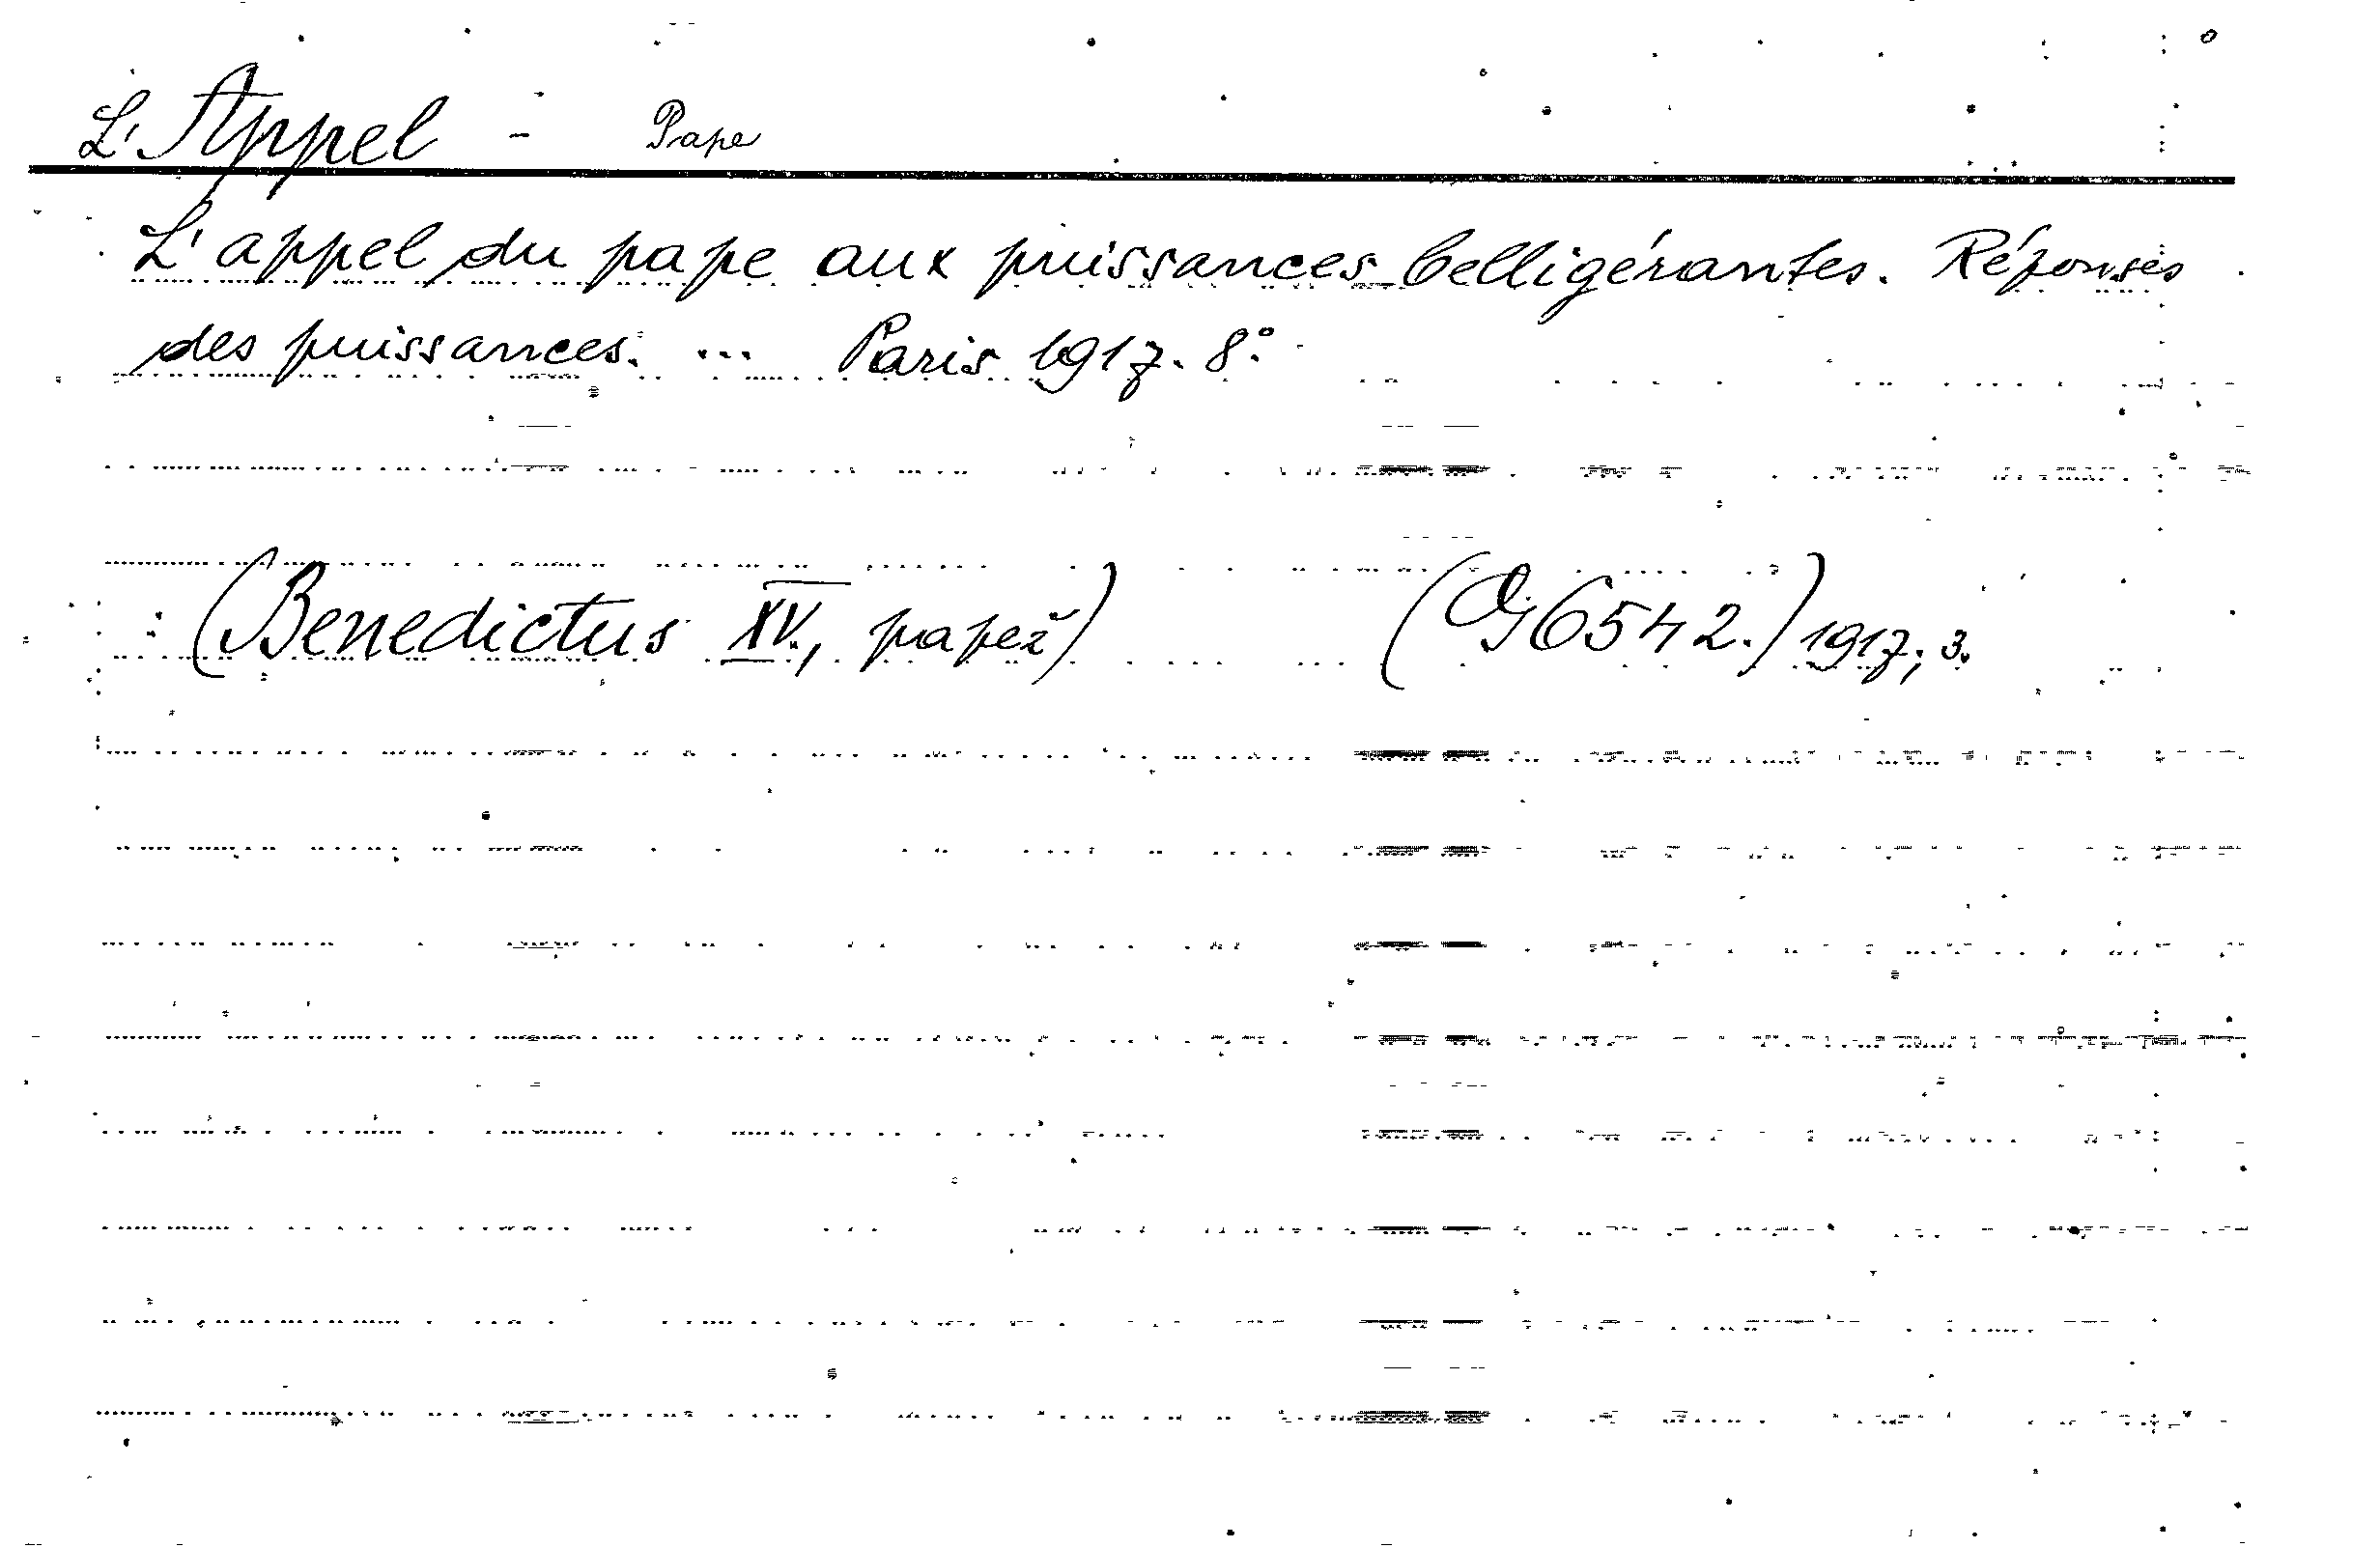 L'Appel - Pape
L'appel du pape aux puissances belligérantes. Réponses
des puissances. ... Paris 1917. 8°.
(Benedictus XV., papež) (Og 6542.) 1917, 3.